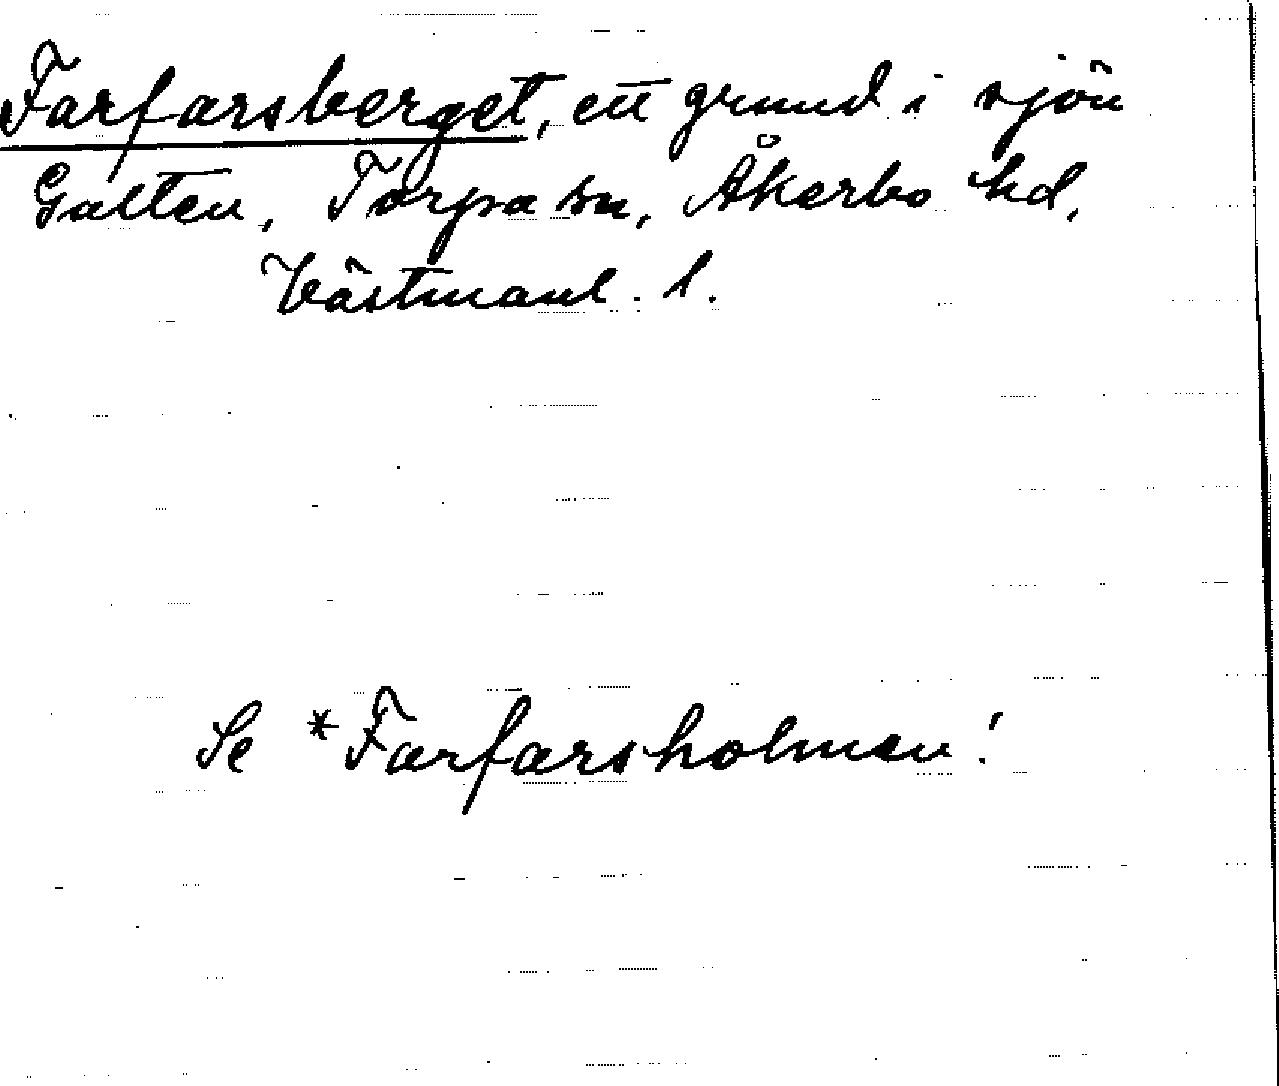 Farfarsberget, ett grund i sjön
Galten, Torpa sn, Åkerbo hd,
Västmanl. l.
Se *Farfarsholmen!